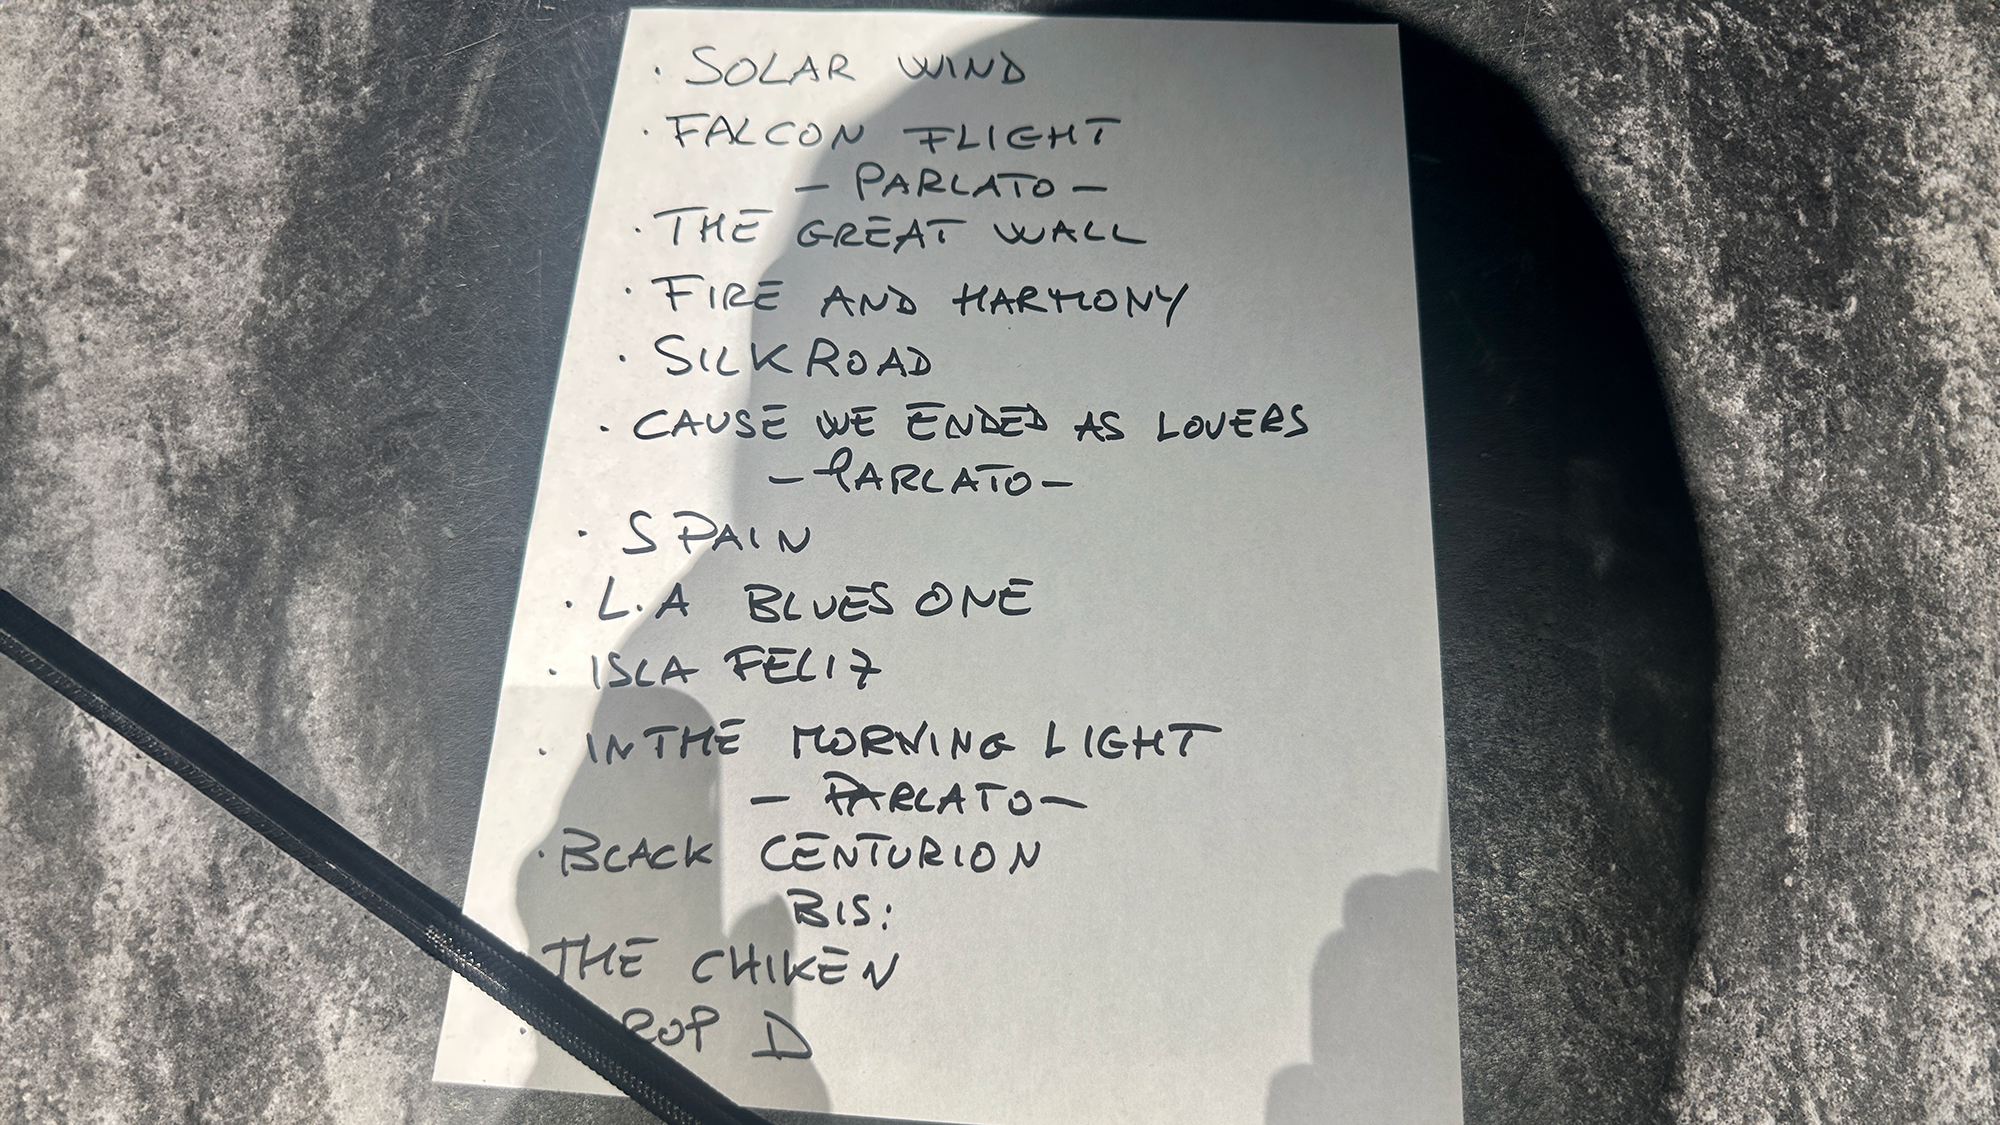 · SOLAR WIND
· FALCON FLIGHT
– PARLATO –
· THE GREAT WALL
· FIRE AND HARMONY
· SILK ROAD
· CAUSE WE ENDED AS LOVERS
– PARLATO –
· SPAIN
· L.A BLUES ONE
· ISLA FELIZ
· IN THE MORNING LIGHT
– PARLATO –
· BLACK CENTURION
BIS:
THE CHIKEN
· ROP D